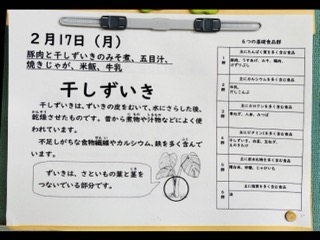 2月17日（月）
豚肉と干しずいきのみそ煮、五目汁、
焼きじゃが、米飯、牛乳
干しずいき
干しずいきは、ずいきの皮をむいて、水にさらした後、
乾燥させたものです。昔から煮物や汁物などによく使
われています。
不足しがちな食物繊維やカルシウム、鉄を多く含んで
います。
ずいきは、さといもの葉と茎を
つないでいる部分です。
6つの基礎食品群
1群
主にたんぱく質を多く含む食品
2群
主にカルシウムを多く含む食品
牛乳、
3群
主にカロテンを多く含む食品
4群
主にビタミンCを多く含む食品
5群
主に炭水化物を多く含む食品
6群
主に脂質を多く含む食品
油